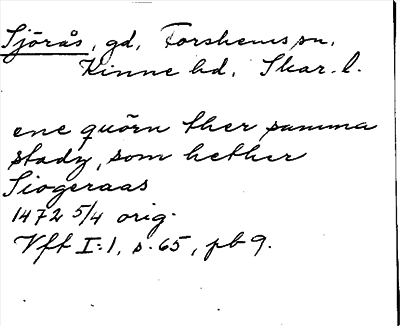 Sjörås, gd, Forshems sn,
Kinne hd, Skar. l.
ene quörn ther samma
stadz, som hether
Siogeraas
1472 5/4 orig.
Vff I:1, s. 65, pb 9.